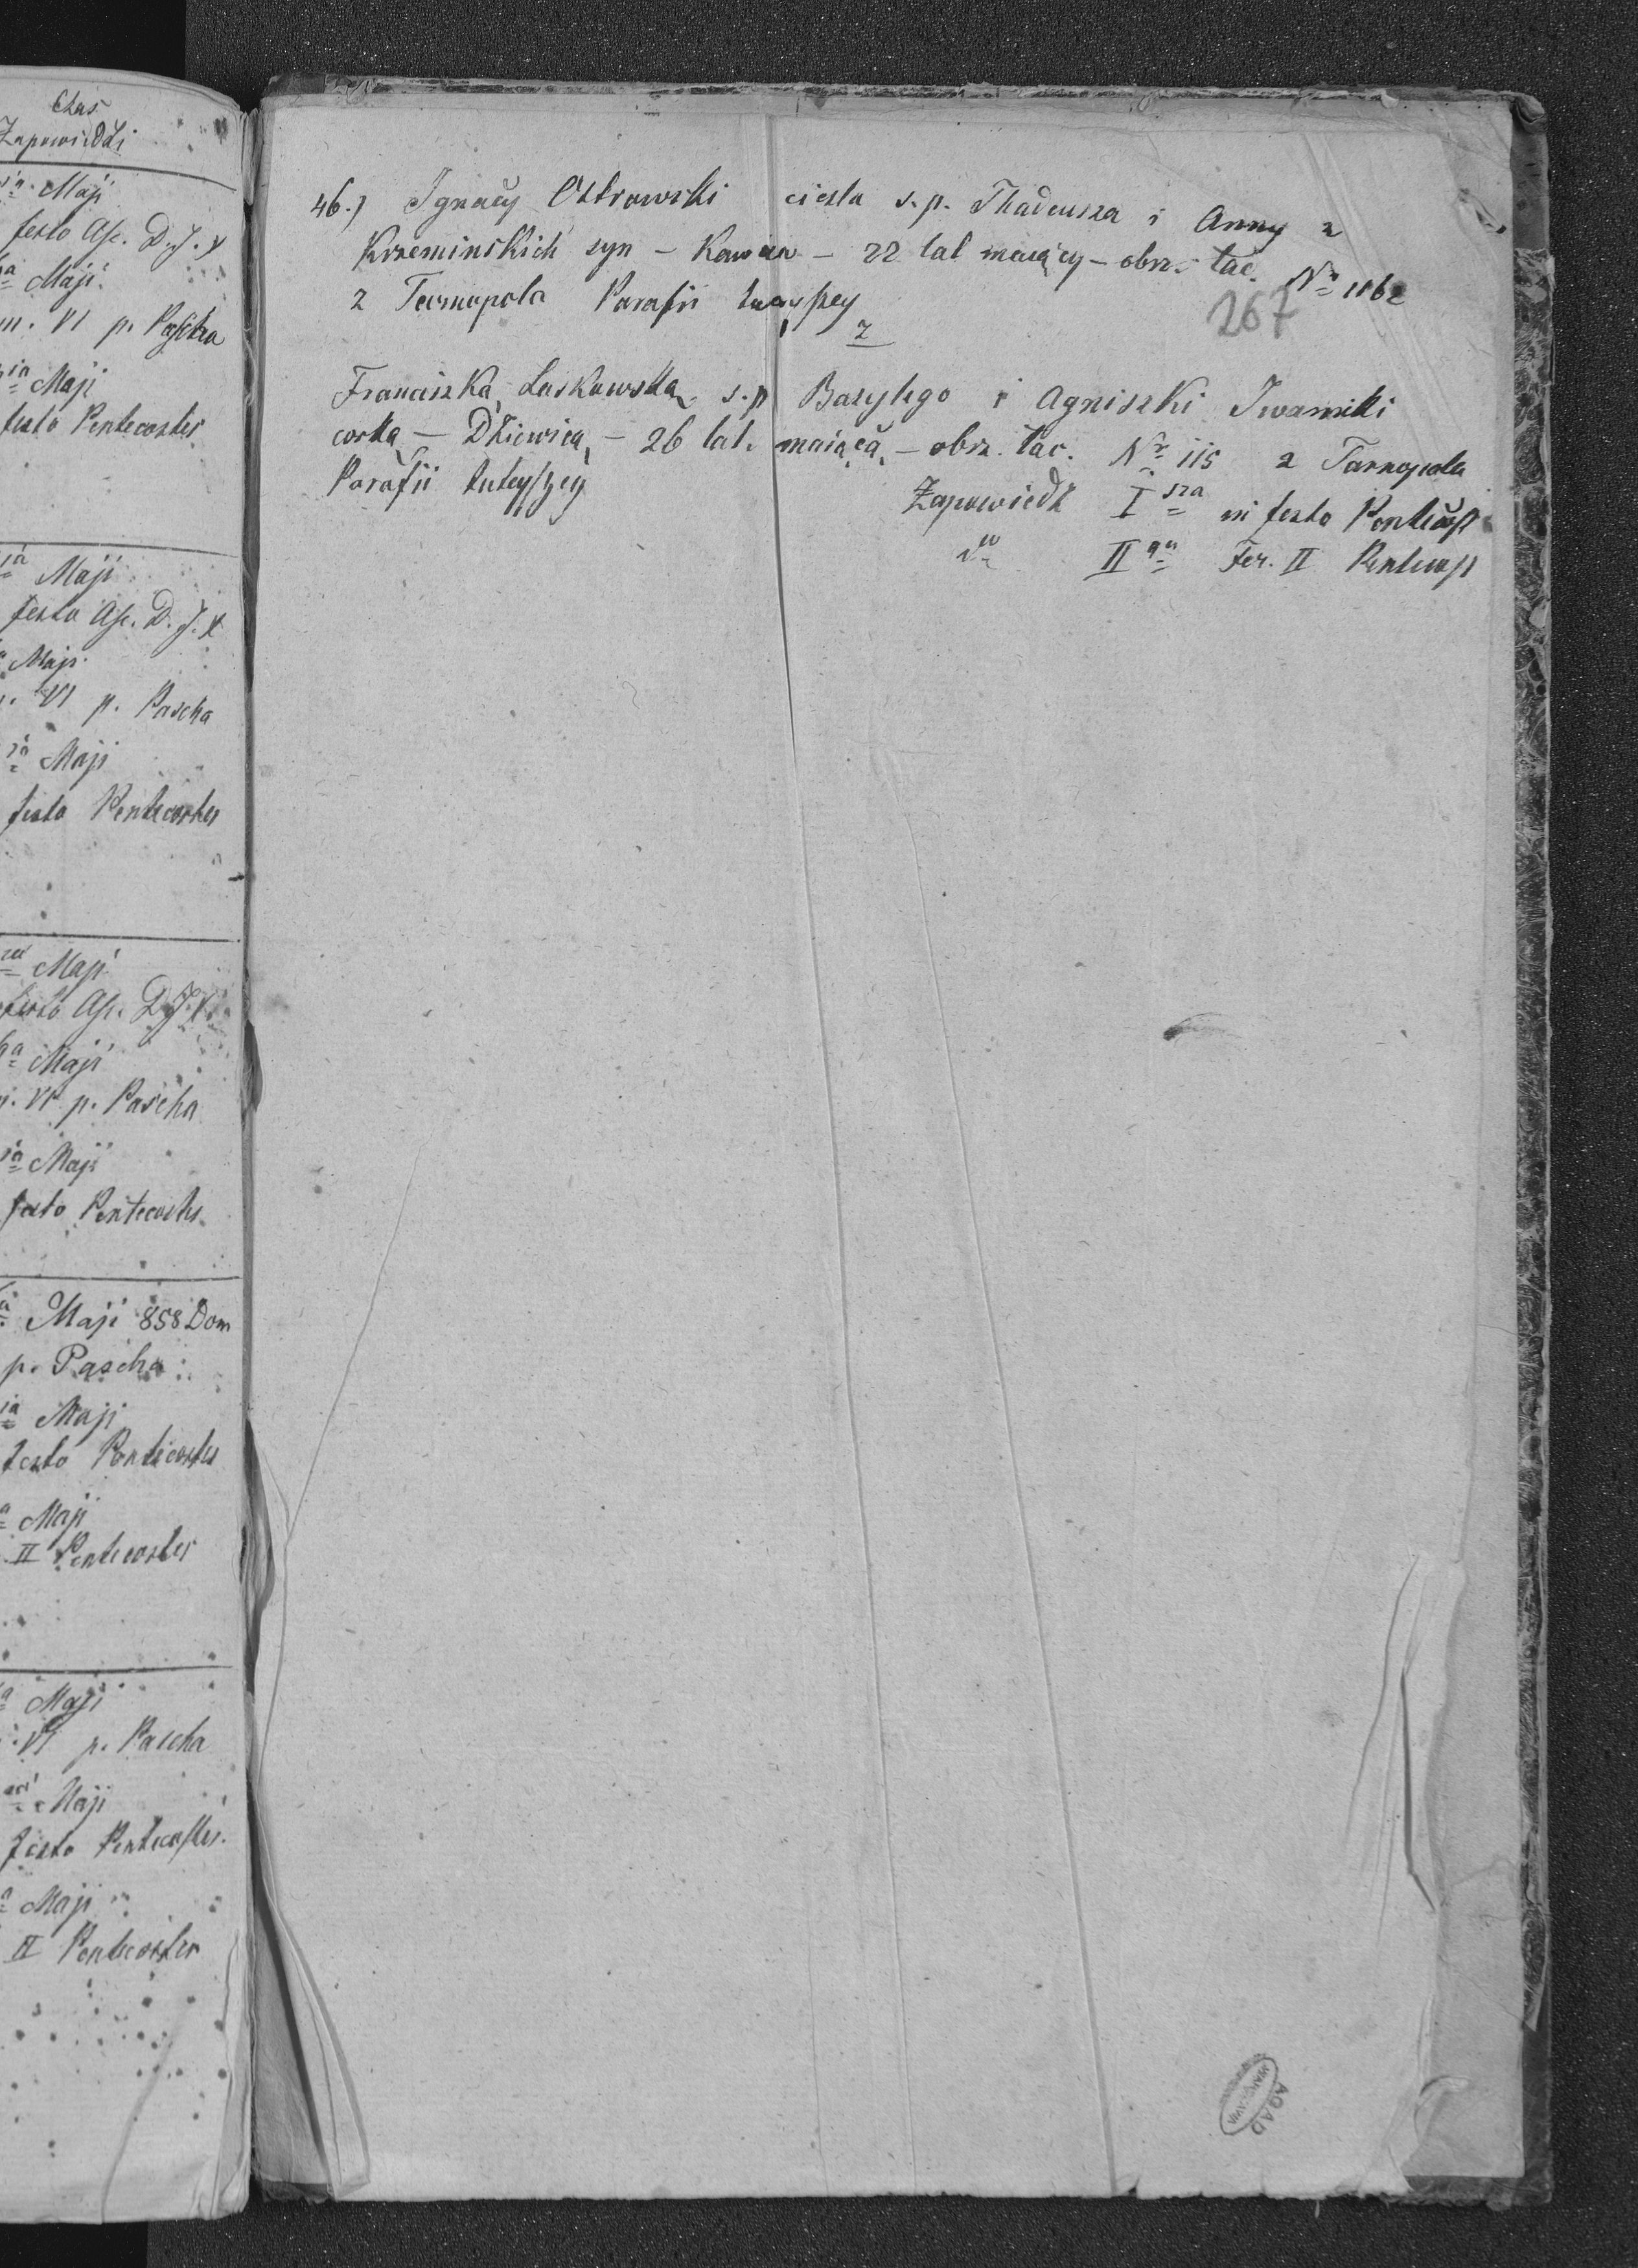 Czas
Zapowiedzi
Maji
festo Asc. D. J. X
Maji
VI p. Pascha
Maji
festo Pentecostes
Maji
festo Asc. D. J. X
Maji
VI p. Pascha
Maji
festo Pentecostes
Maji
festo Asc. D. J. X
Maji
VI p. Pascha
Maji
festo Pentecostes
Maji 858 Dom
p. Pascha
Maji
festo Pentecostes
Maji
II Pentecostes
Maji
VI p. Pascha
Maji
festo Pentecostes
Maji
II Pentecostes
46.) Ignacy Ostrowski ciesla s. p. Thadeusza i Anny z
Krzeminskich syn – Kawaler – 22 lat maiący – obrz. łac. Nr 1162
z Tarnopola Parafii tuteyszey
267
z
Franciszką Laskowską s. p Bazylego i Agniszki Iwanicki
corką – Dziewicą – 26 lat maiącą – obrz. łac. Nr 115 z Tarnopola
Parafii tuteyszey
Zapowiedź I sza in festo Pentecost
do II ga Fer. II Pentecost
AGAD
WARSZAWA